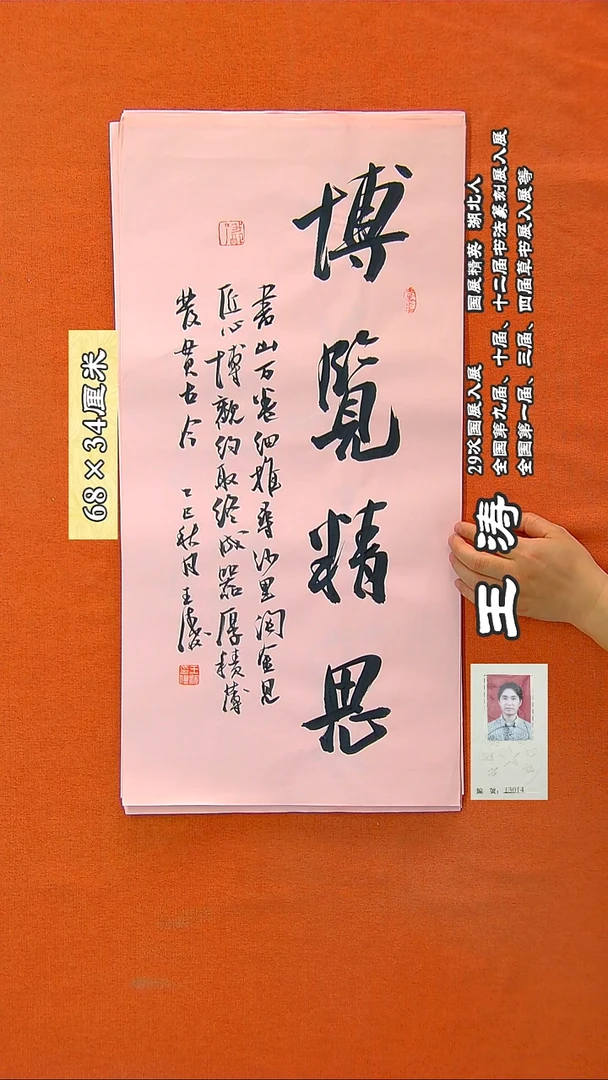 博覽精思
書山万卷细推尋沙里淘金見
匠心博觀约取终成器厚積薄
發貫古今 乙巳秋月王涛
68×34厘米
王涛
29次国展入展 国展精英 湖北人
全国第九届、十届、十二届书法篆刻展入展
全国第一届、三届、四届草书展入展等
編號：13014